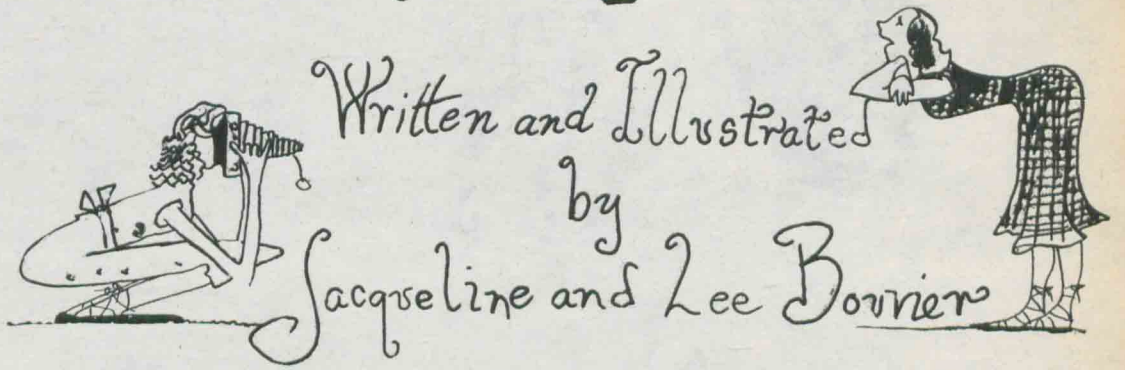 Written and Illustrated
by
Jacqueline and Lee Bouvier